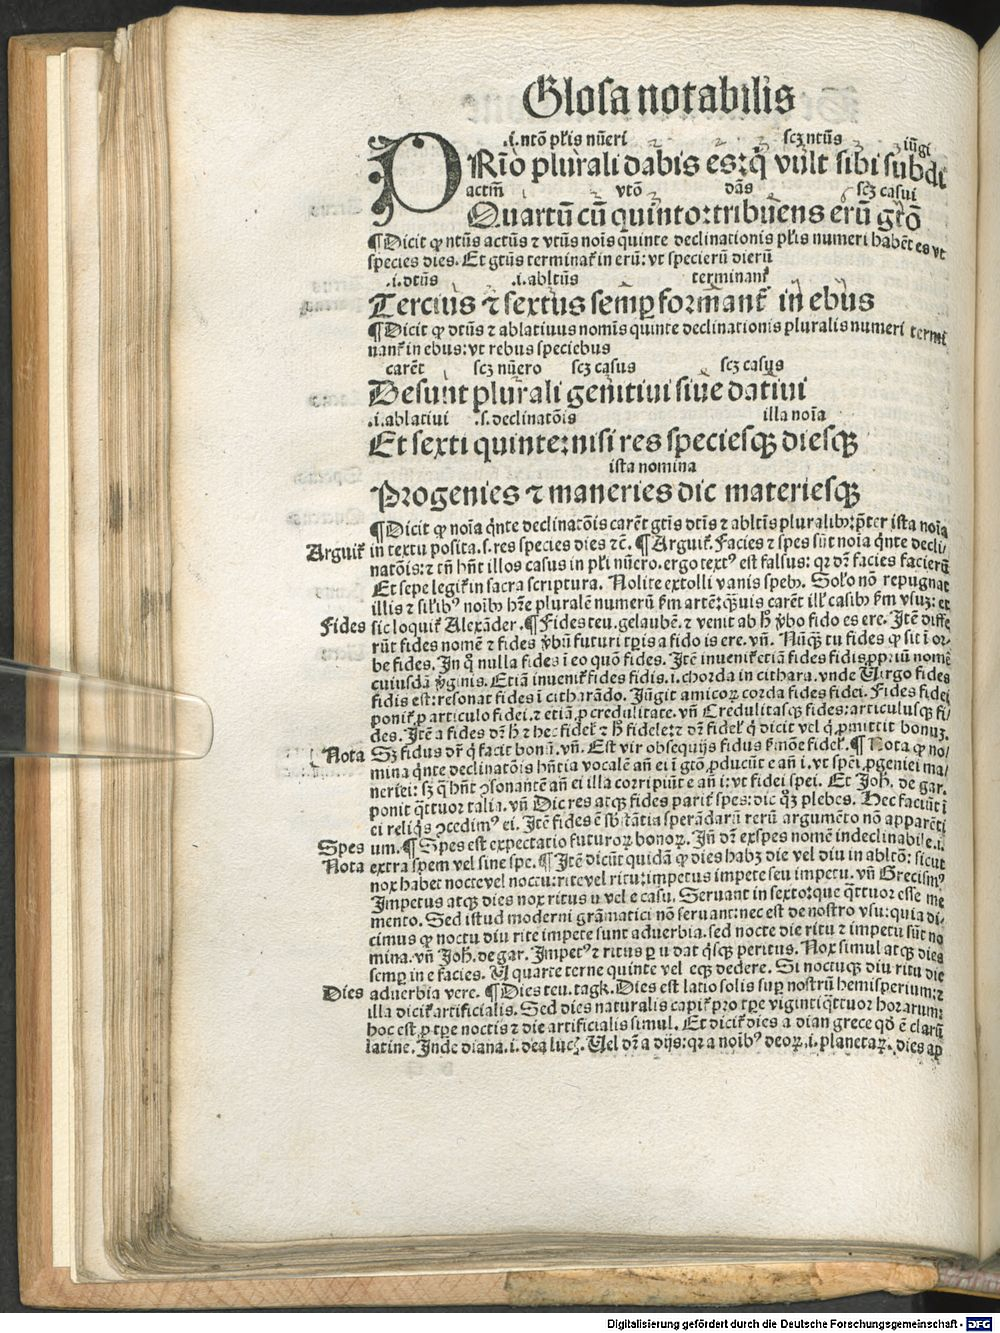 Glosa notabilis
.i. ntō pl̄is nūeri scꝫ ntūs iūgi
PRīo plurali dabis es: ꝙ vult sibi subdi
actm̄ vtō dās scꝫ casui
Quartū cū quinto: tribuens erū gtō
¶ Dicit ꝙ ntūs actūs ⁊ vtūs noīs quinte declinationis pl̄is numeri habēt es vt
species dies. Et gtūs terminat̄ in erū: vt specierū dierū
.i. dtūs .i. abltūs terminant̄
Tercius ⁊ sextus semꝑ formant̄ in ebus
¶ Dicit ꝙ dtūs ⁊ ablatiuus nomīs quinte declinationis pluralis numeri termi
nant̄ in ebus: vt rebus speciebus
carēt scꝫ nūero scꝫ casus scꝫ casus
Desunt plurali genitiui siue datiui
.i. ablatiui .s. declinatōis illa noīa
Et sexti quinte: nisi res speciesqꝫ diesqꝫ
ista nomina
Progenies ⁊ maneries dic materiesqꝫ
¶ Dicit ꝙ noīa qinte declinatōis carēt gtīs dtīs ⁊ abltīs pluralibꝰ: p̄ter ista noīa
Arguit̄ in textu posita. s. res species dies ⁊c̄. ¶ Arguit̄. Facies ⁊ spes sūt noīa qinte decli
natōis: ⁊ tn̄ hn̄t illos casus in pl̄i nūero. ergo textꝰ est falsus: qꝛ dr̄ facies facierū
Et sepe legit̄ in sacra scriptura. Nolite extolli vanis spebꝰ. Solo nō repugnat
illis ⁊ sil̄ibꝰ noībꝰ hr̄e pluralē numerū ẜm artē: qꝫuis carēt ill̄ casibꝰ ẜm vsuꝫ: et
Fides sic loquit̄ Alexāder. ¶ Fides teu. gelaubē. ⁊ venit ab hͦ v̄bo fido es ere. Itē diffe
rūt fides nomē ⁊ fides v̄bū futuri tꝑis a fido is ere. vn̄. Nūqꝫ tu fides ꝙ sit ī or
be fides. In qͦ nulla fides ī eo quō fides. Itē inuenit̄ etiā fides fidis ꝓpriū nomē
cuiusdā v̄ginis. Etiā inuenit̄ fides fidis .i. chorda in cithara. vnde Virgo fides
fidis est: resonat fides ī citharādo. Iūgit amicoꝝ corda fides fidei. Fides fidei
ponit̄ ꝓ articulo fidei. ⁊ etiā ꝓ credulitate. vn̄ Credulitasqꝫ fides: articulusqꝫ fi
des. Itē a fides dr̄ hͨ ⁊ hec fidel̄ ⁊ hͦ fidele: ⁊ dr̄ fidel̄ qͥ dicit vel qͥ ꝓmittit bonuꝫ.
Nota Sꝫ fidus dr̄ qͥ facit bonū. vn̄. Est vir obsequijs fidus ẜmōe fidel̄. ¶ Nota ꝙ no/
mina qinte declinatōis hn̄tia vocalē añ ei ī gtō ꝓducūt e añ i. vt spei ꝓgeniei ma/
neriei: sꝫ qͥ hn̄t ꝯsonantē añ ei illa corripiūt e añ i: vt fidei spei. Et Joh̄. de gar.
ponit qttuor talia. vn̄ Dic res atqꝫ fides parit̄ spes: dic qͦꝫ plebes. Hec faciūt ī
ei reliqͥs ꝯcedimꝰ ei. Itē fides ē sb̄stātia sperādarū rerū argumēto nō apparēti
Spes um. ¶ Spes est expectatio futuroꝝ bonoꝝ. In̄ dr̄ exspes nomē indeclinabile .i.
Nota extra spem vel sine spe. ¶ Itē dicūt quidā ꝙ dies habꝫ die vel diu in abltō: sicut
nox habet nocte vel noctu: rite vel ritu: impetus impete seu impetu. vn̄ Grecismꝰ
Impetus atqꝫ dies nox ritus u vel e casu. Seruant in sexto: que qttuor esse me
mento. Sed istud moderni grāmatici nō seruant: nec est de nostro vsu: quia di/
cimus ꝙ noctu diu rite impete sunt aduerbia. sed nocte die ritu ⁊ impetu sūt no
mina. vn̄ Joh̄. de gar. Impetꝰ ⁊ ritus ꝑ u dat qͥsqꝫ peritus. Nox simul atqꝫ dies
semꝑ in e facies. U quarte terne quinte vel eqꝫ dedere. Si noctuqꝫ diu ritu die
Dies aduerbia vere. ¶ Dies teu. tagk. Dies est latio solis suꝑ nostrū hemisperium: ⁊
illa dicit̄ artificialis. Sed dies naturalis capit̄ pro tꝑe viginti qttuor horarum:
hoc est ꝓ tꝑe noctis ⁊ die artificialis simul. Et dicit̄ dies a dian grece qd̄ ē clarū
latine. Inde diana .i. dea lucꝭ. Vel dr̄ a dijs: qꝛ a noībꝰ deoꝝ .i. planetaꝝ. dies ap
Digitalisierung gefördert durch die Deutsche Forschungsgemeinschaft - DFG